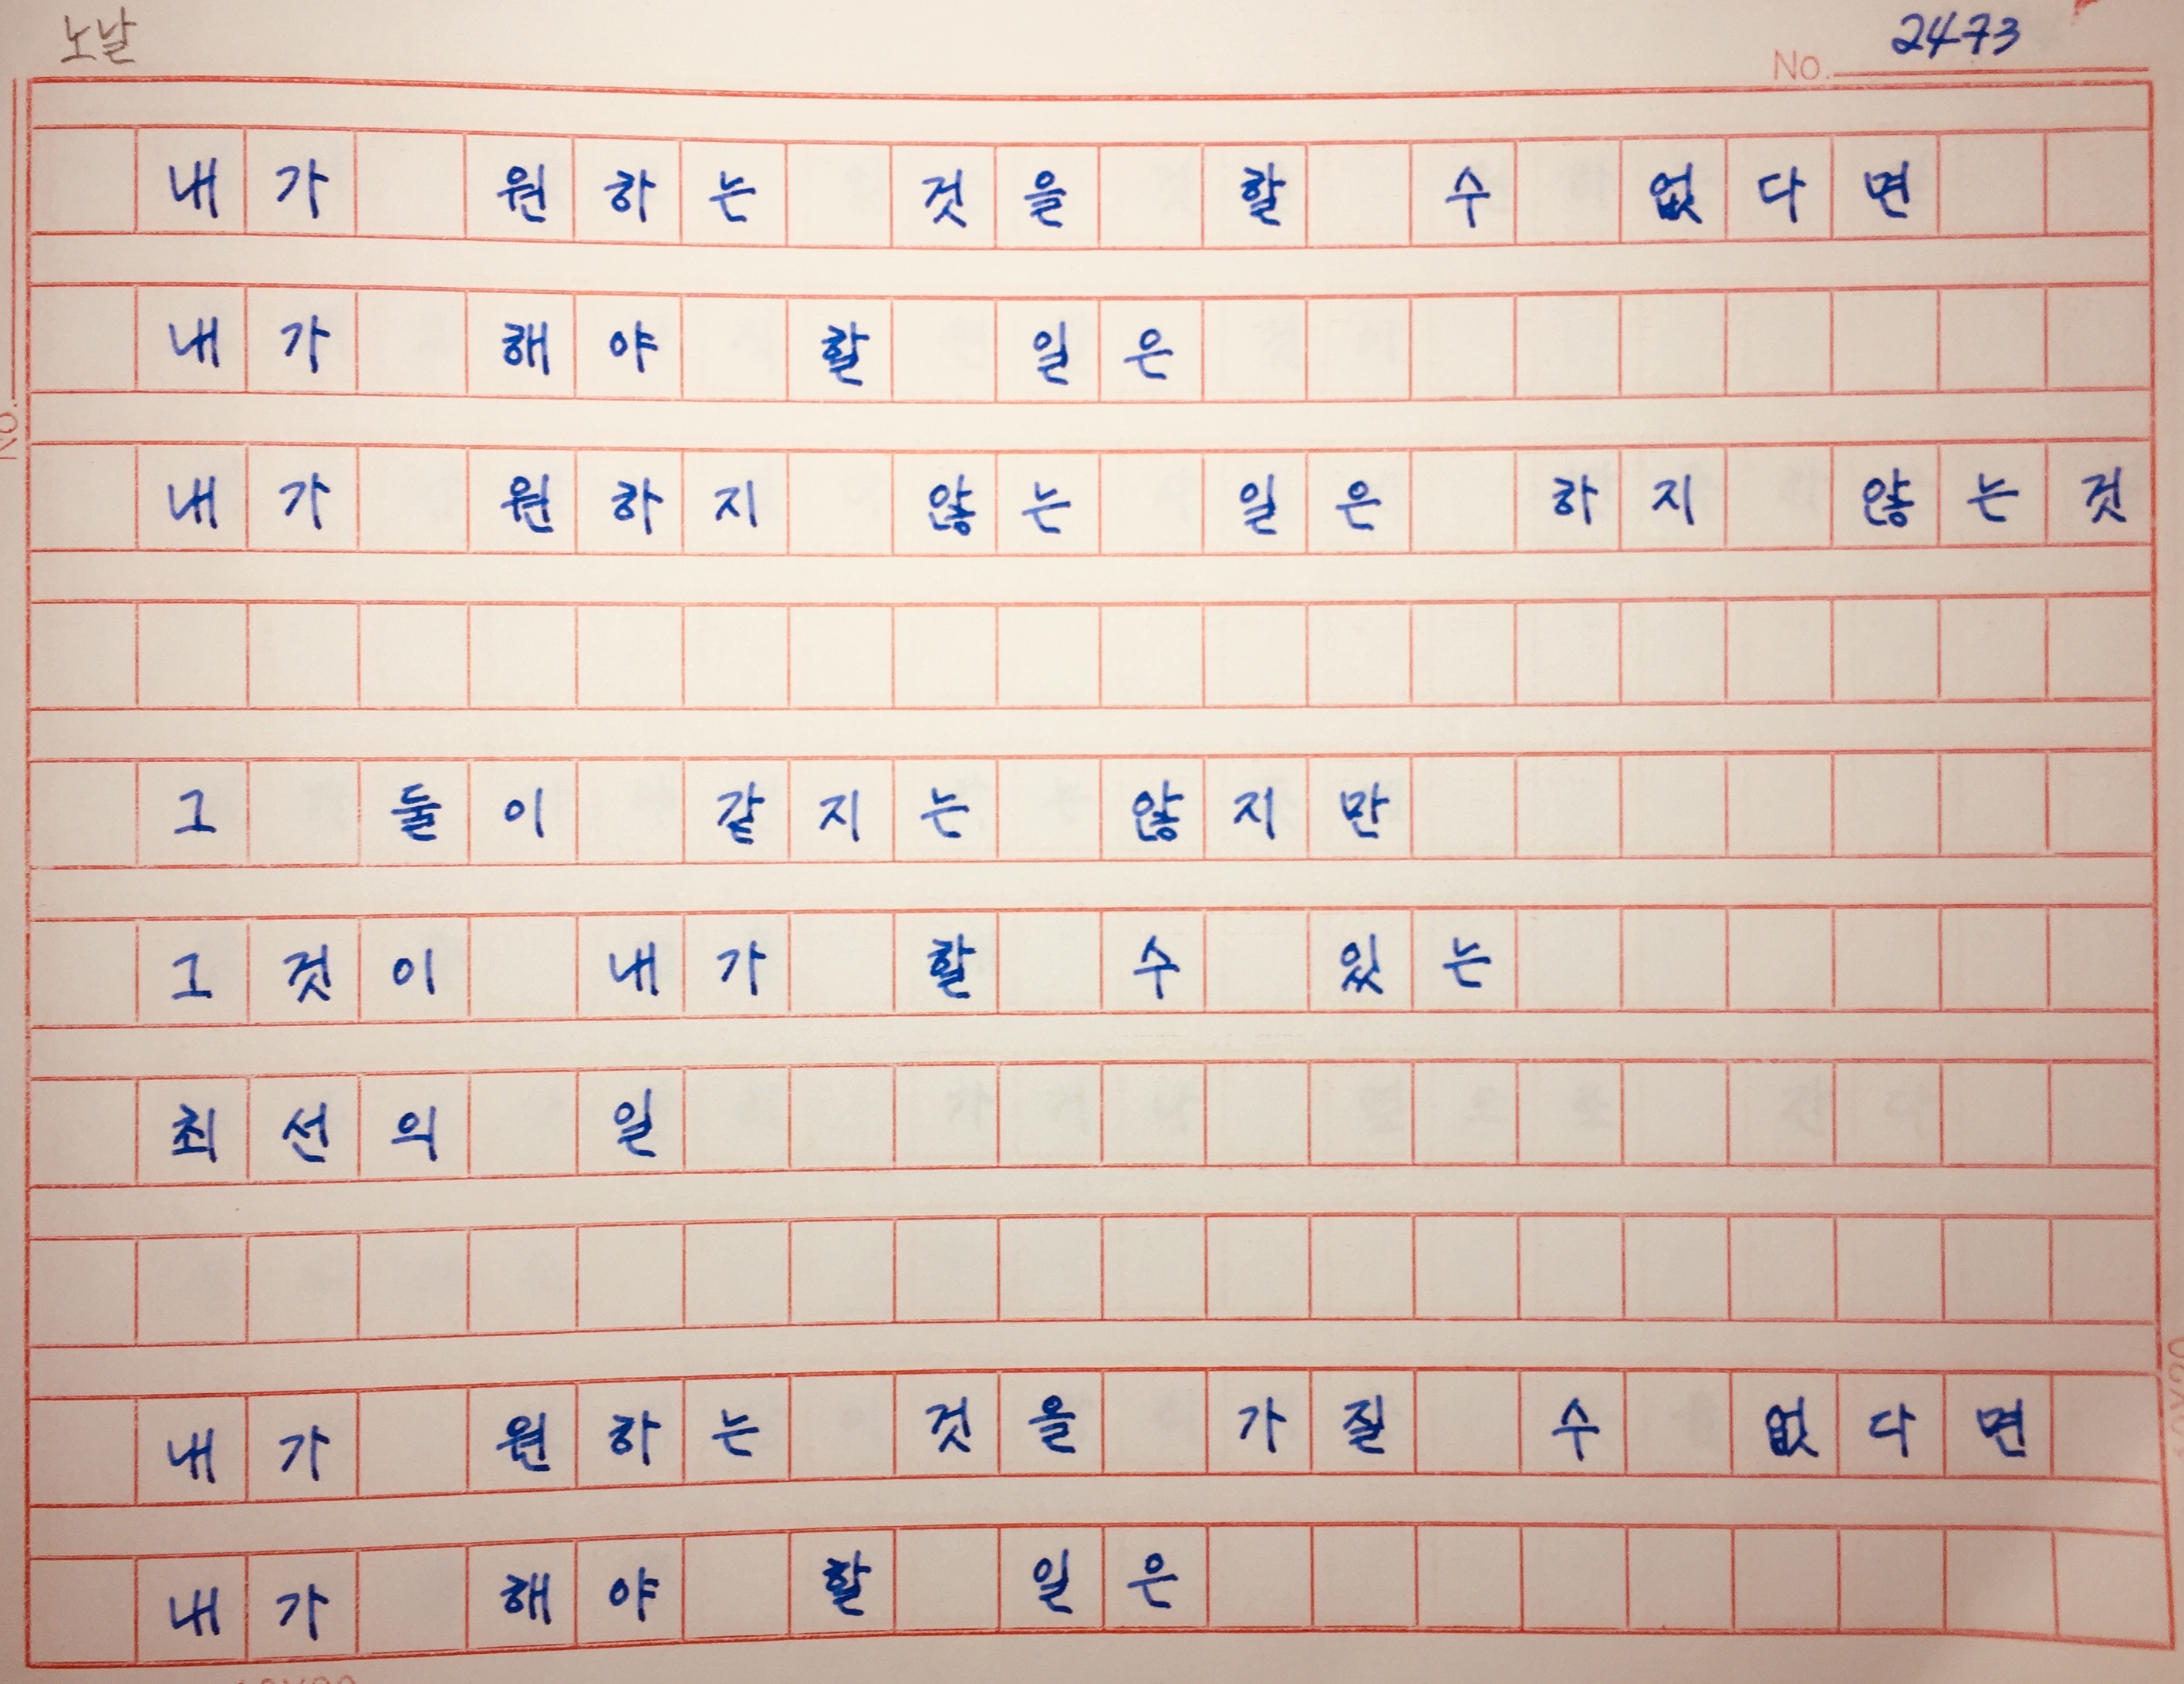 노날
2473
No.
내가 원하는 것을 할 수 없다면
내가 해야 할 일은
내가 원하지 않는 일은 하지 않는 것
그 둘이 같지는 않지만
그것이 내가 할 수 있는
최선의 일
내가 원하는 것을 가질 수 없다면
내가 해야 할 일은
No.